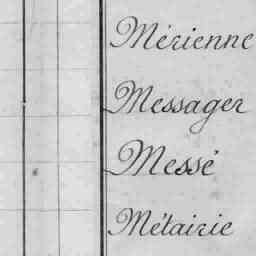 Mérienne
Messager
Messé
Métairie